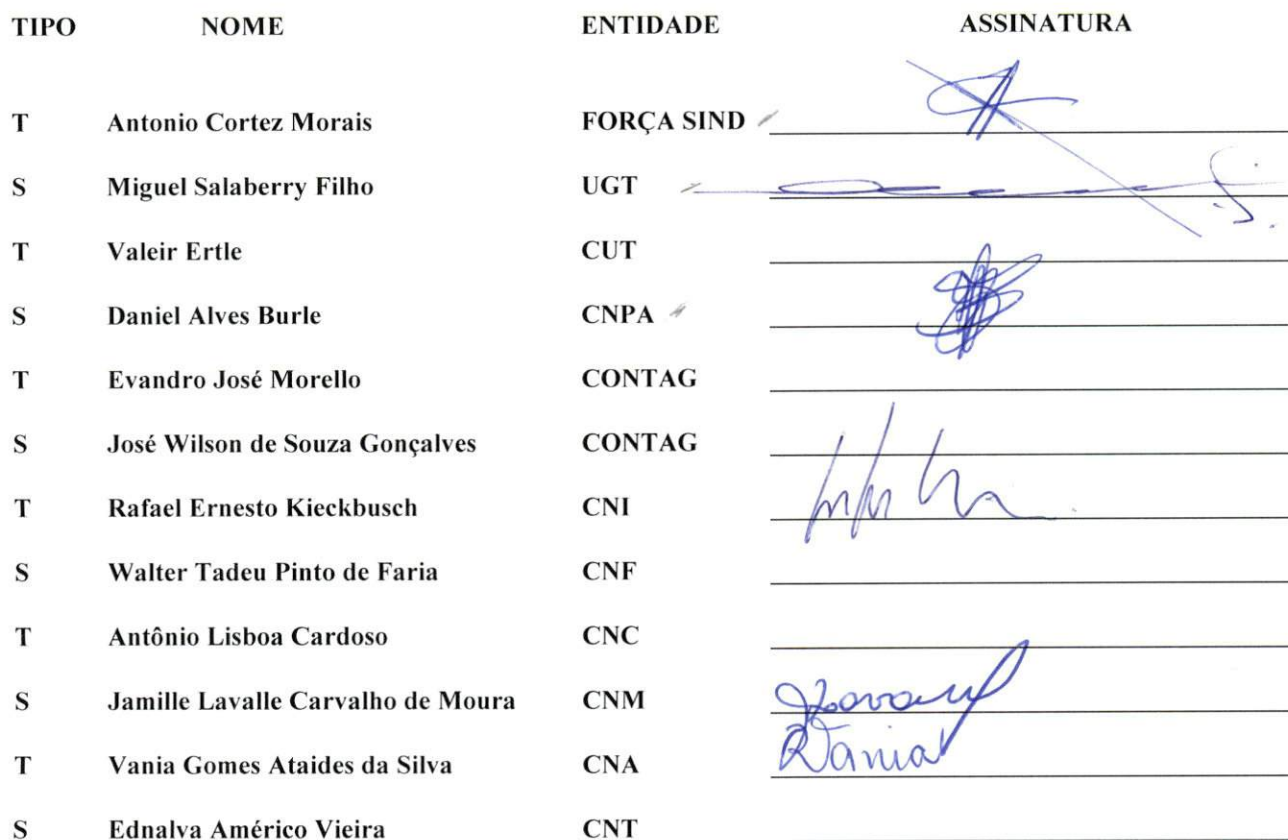 TIPO NOME ENTIDADE ASSINATURA
T Antonio Cortez Morais FORÇA SIND
S Miguel Salaberry Filho UGT
T Valeir Ertle CUT
S Daniel Alves Burle CNPA
T Evandro José Morello CONTAG
S José Wilson de Souza Gonçalves CONTAG
T Rafael Ernesto Kieckbusch CNI
S Walter Tadeu Pinto de Faria CNF
T Antônio Lisboa Cardoso CNC
S Jamille Lavalle Carvalho de Moura CNM
T Vania Gomes Ataides da Silva CNA Vania
S Ednalva Américo Vieira CNT